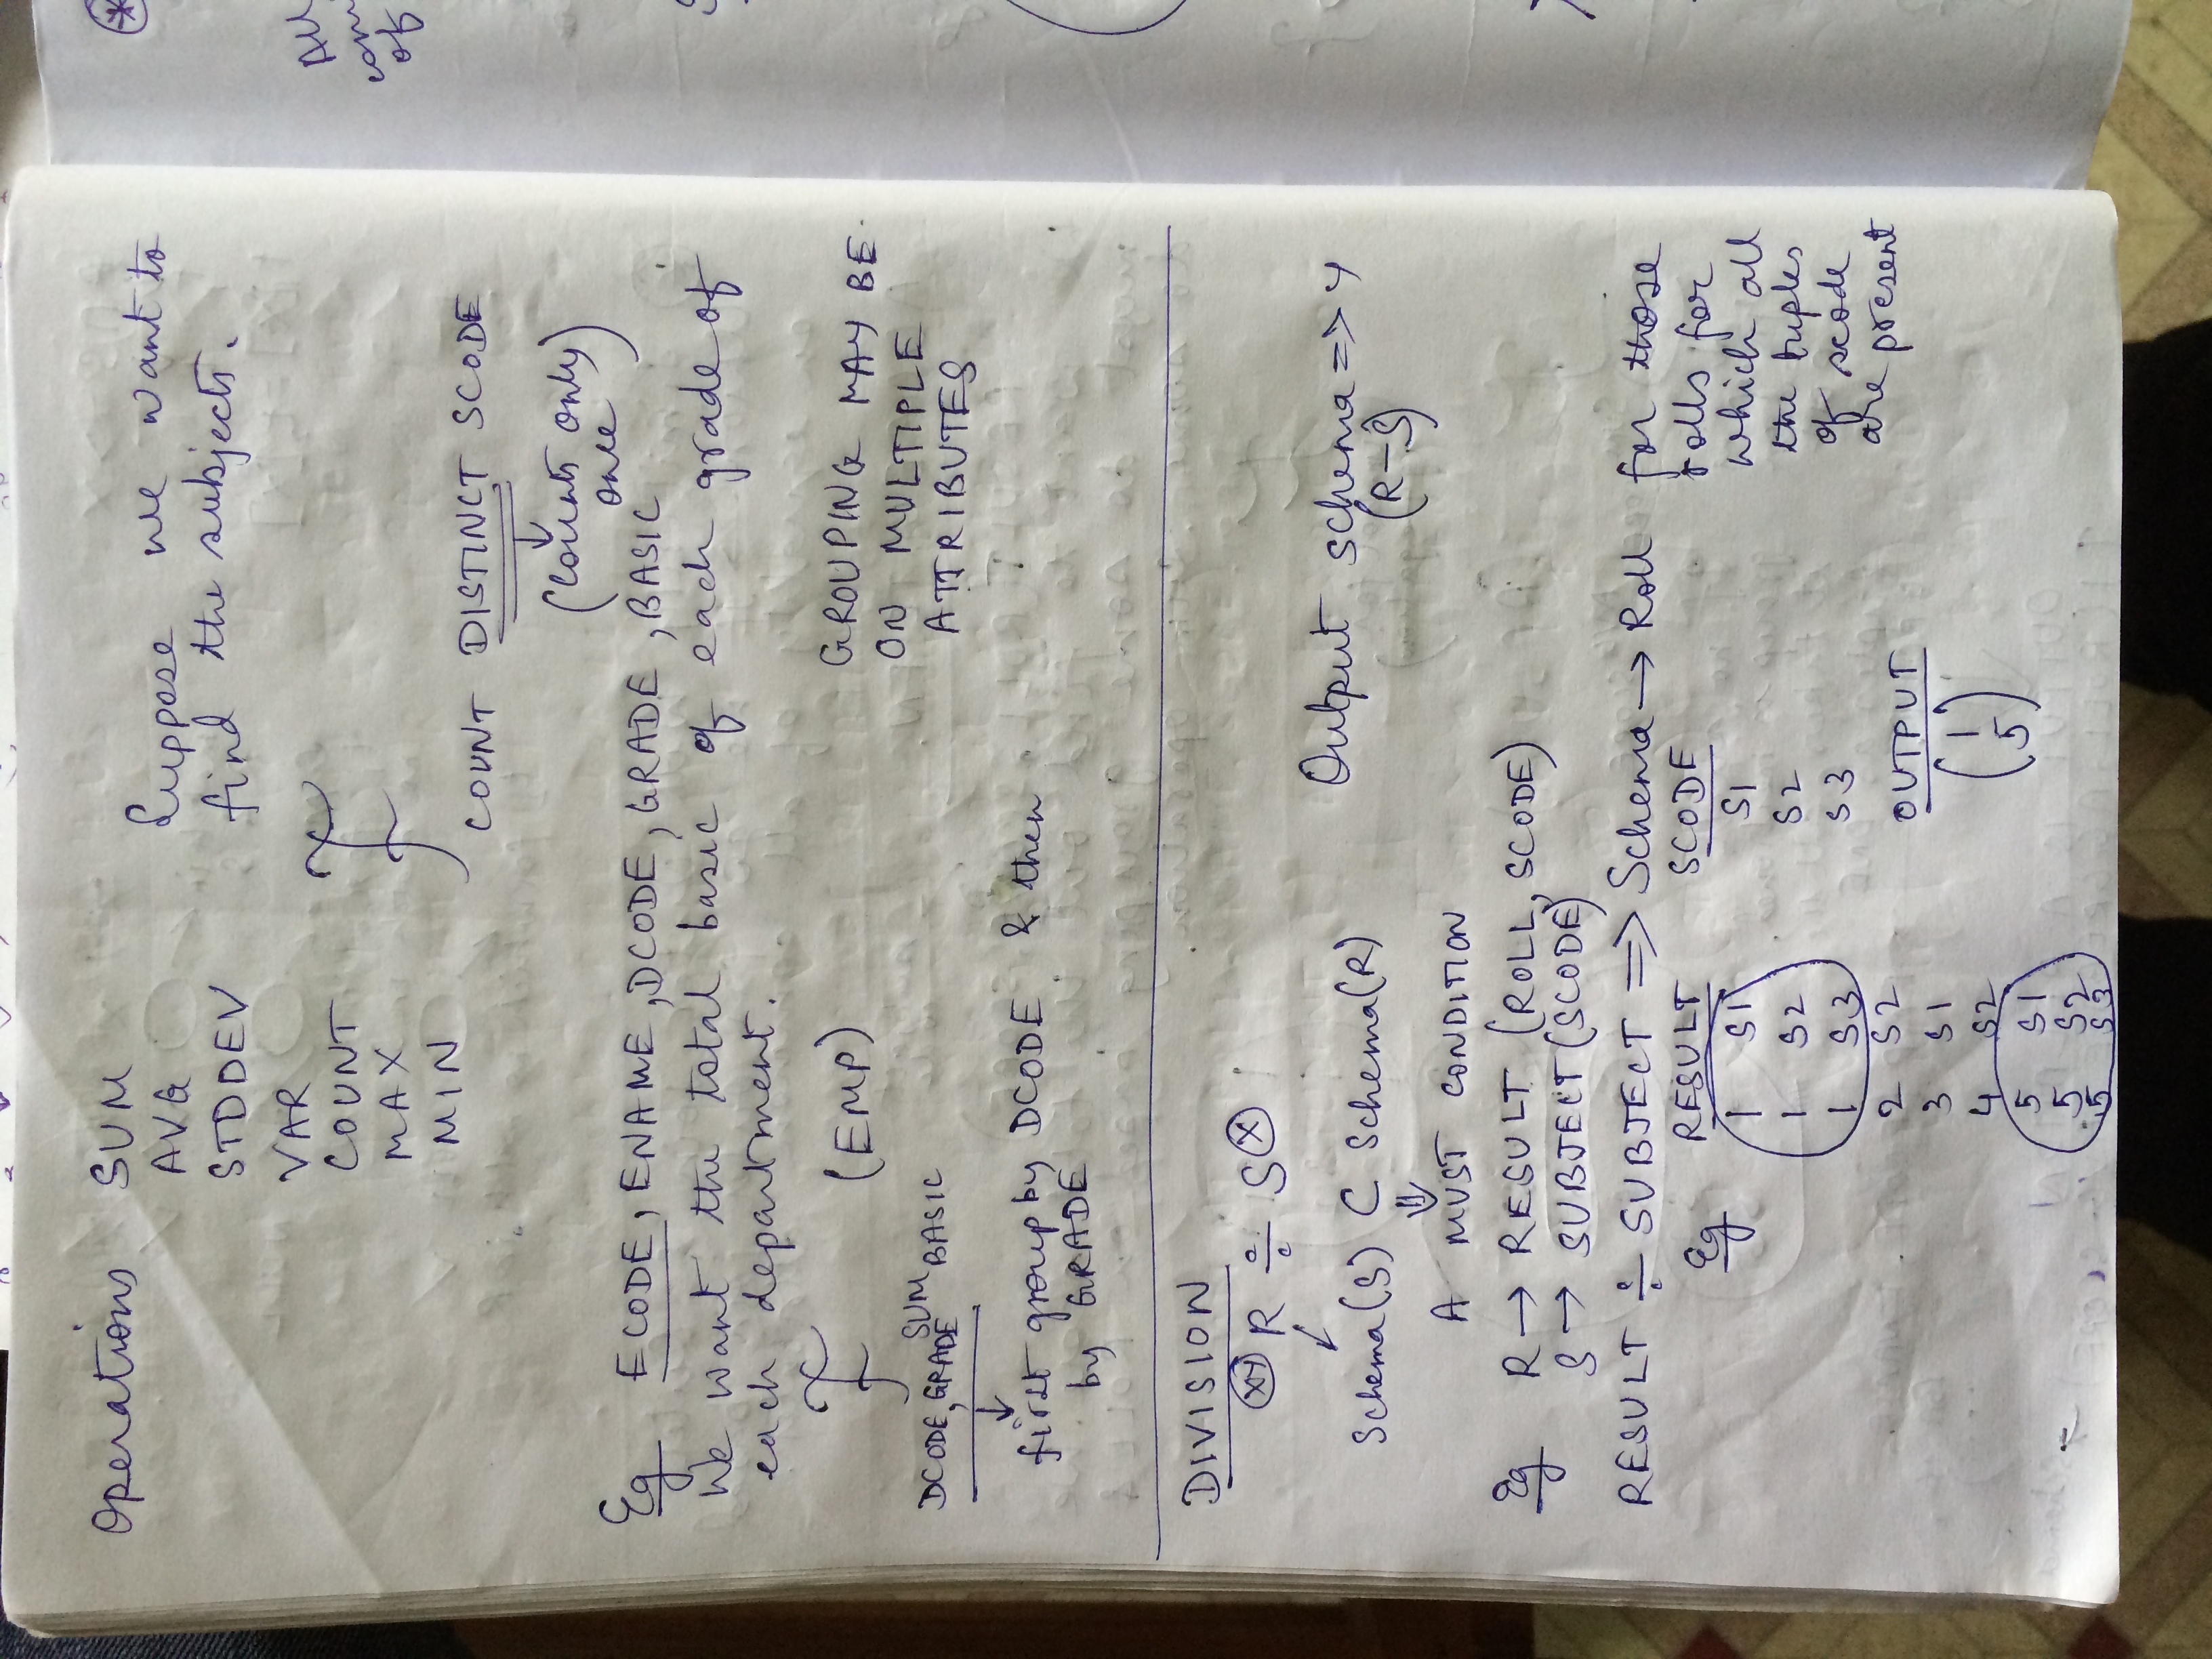 Operations SUM
AVG
STDDEV
VAR
COUNT
MAX
MIN
Suppose we want to
find the subjects.
ℱ
COUNT DISTINCT SCODE
↓
(Counts only
once)
Eg ECODE, ENAME, DCODE, GRADE, BASIC
We want the total basic of each grade of
each department.
ℱ (EMP)
DCODE, GRADE SUM BASIC
↓
first group by DCODE & then
by GRADE
GROUPING MAY BE
ON MULTIPLE
ATTRIBUTES
DIVISION
XY R ÷ S X
Schema(S) ⊂ Schema(R)
⇓
A MUST CONDITION
Output schema => Y
(R-S)
Eg R → RESULT (ROLL, SCODE)
S → SUBJECT (SCODE)
RESULT ÷ SUBJECT => Schema → Roll for those
rolls for
which all
the tuples
of scode
are present
Eg RESULT
1 S1
1 S2
1 S3
2 S2
3 S1
4 S2
5 S1
5 S2
5 S3
SCODE
S1
S2
S3
OUTPUT
(1
5)
All
of